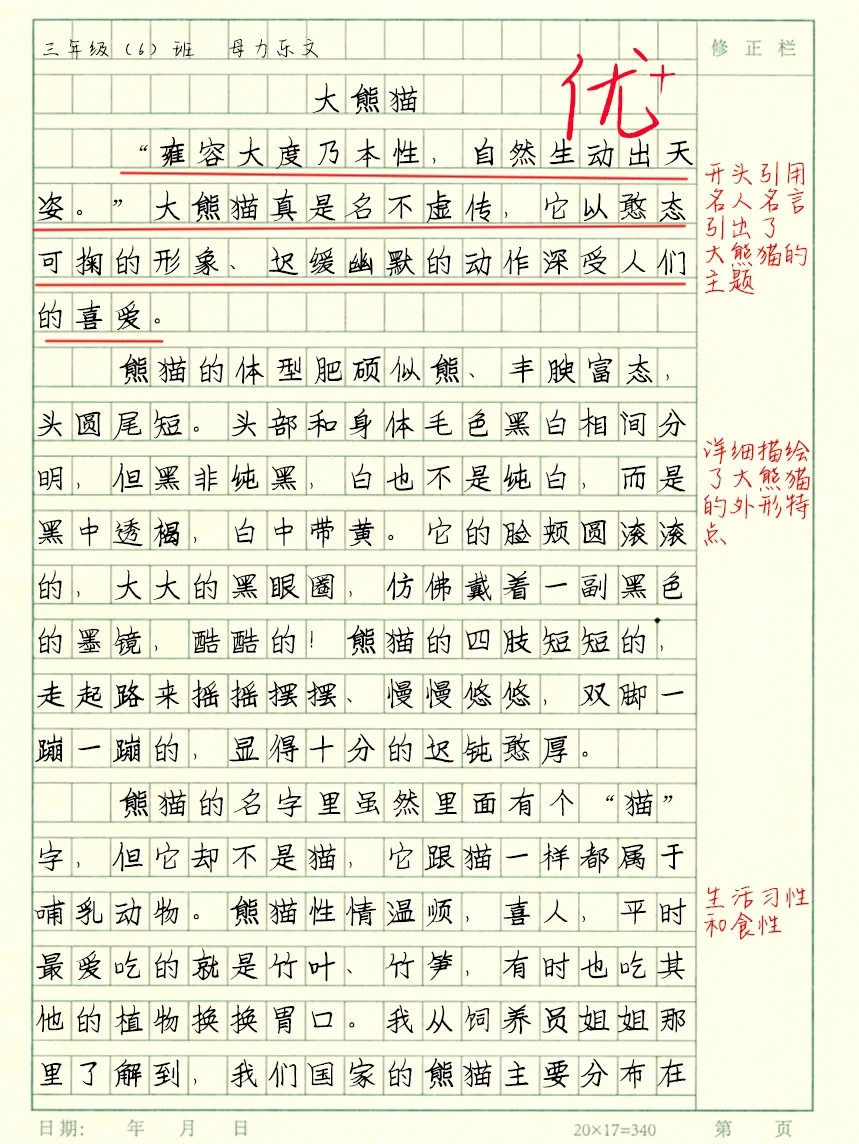 三年级（6）班 母力乐文
修正栏
大熊猫
优+
“雍容大度乃本性，自然生动出天
姿。”大熊猫真是名不虚传，它以憨态
可掬的形象、迟缓幽默的动作深受人们
的喜爱。
开头引用
名人名言
引出了
大熊猫的
主题
熊猫的体型肥硕似熊、丰腴富态，
头圆尾短。头部和身体毛色黑白相间分
明，但黑非纯黑，白也不是纯白，而是
黑中透褐，白中带黄。它的脸颊圆滚滚
的，大大的黑眼圈，仿佛戴着一副黑色
的墨镜，酷酷的！熊猫的四肢短短的，
走起路来摇摇摆摆、慢慢悠悠，双脚一
蹦一蹦的，显得十分的迟钝憨厚。
详细描绘
了大熊猫
的外形特
点
熊猫的名字里虽然里面有个“猫”
字，但它却不是猫，它跟猫一样都属于
哺乳动物。熊猫性情温顺，喜人，平时
最爱吃的就是竹叶、竹笋，有时也吃其
他的植物换换胃口。我从饲养员姐姐那
里了解到，我们国家的熊猫主要分布在
生活习性
和食性
日期： 年 月 日 20×17=340 第 页